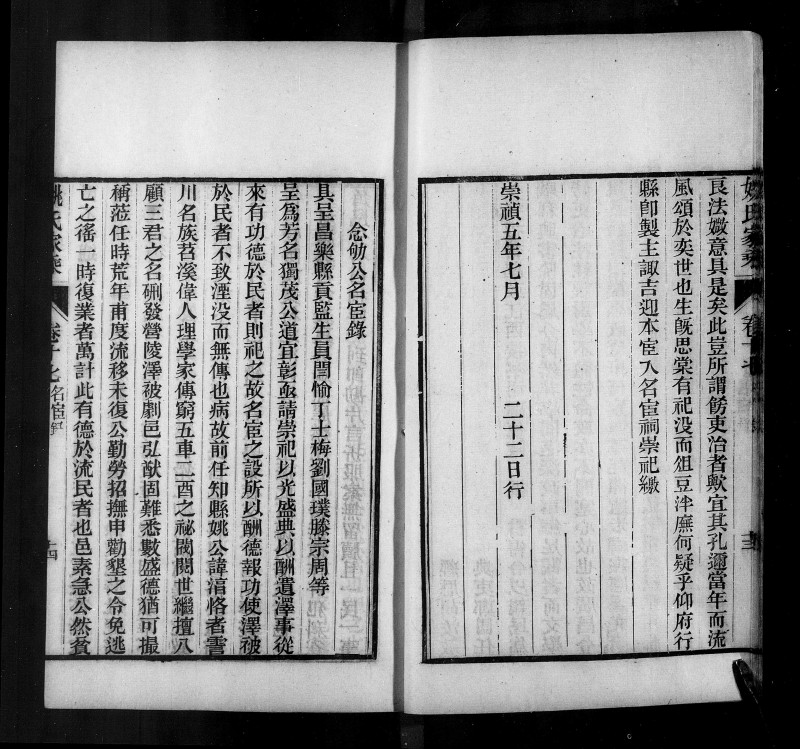 姚氏家乘
卷十七
良法媺意具是矣此豈所謂餝吏治者歟宜其孔邇當年而流
風頌於奕世也生旣思棠有祀没而俎豆泮廡何疑乎仰府行
縣卽製主諏吉迎本宦入名宦祠崇祀繳
崇禎五年七月　二十二日行
念劬公名宦錄
具呈昌樂縣貢監生員閆愉丁士梅劉國璞滕宗周等
呈爲芳名獨茂公道宜彰亟請崇祀以光盛典以酬遺澤事從
來有功德於民者則祀之故名宦之設所以酬德報功使澤被
於民者不致湮没而無傳也病故前任知縣姚公諱湻恪者霅
川名族苕溪偉人理學家傳窮五車二酉之祕閥閱世繼擅八
顧三君之名硎發營陵澤被劇邑弘猷固難悉數盛德猶可撮
稱蒞任時荒年甫度流移未復公勤勞招撫申勸墾之令免逃
亡之徭一時復業者萬計此有德於流民者也邑素急公然貧
姚氏家乘
卷十七名宦
十四